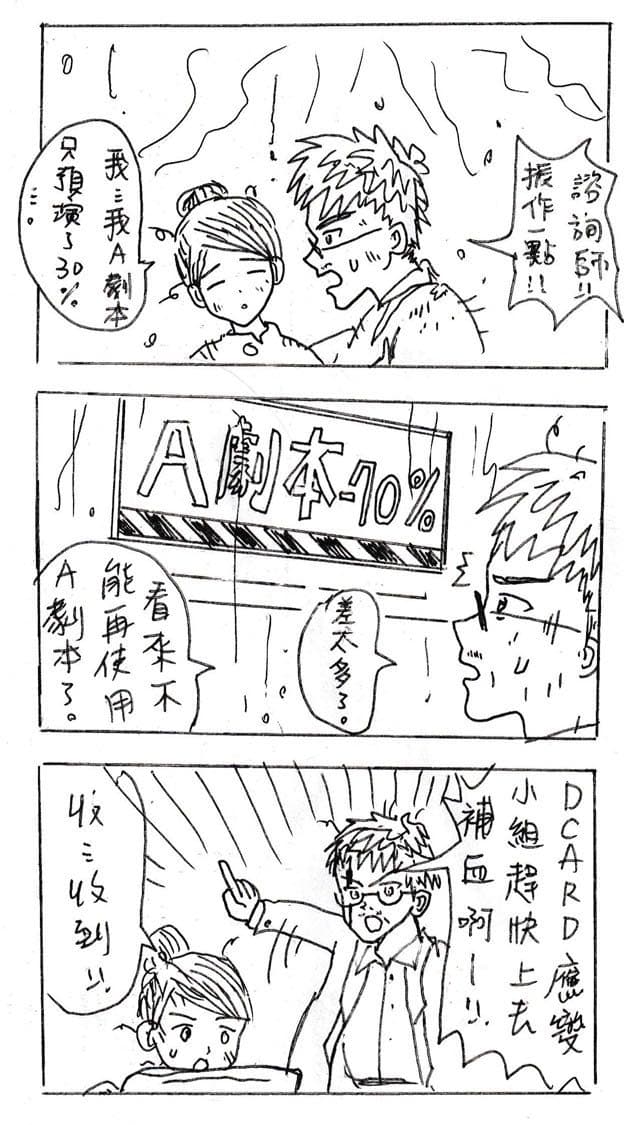 諮詢師!!
振作一點!!
我⋮我A劇本
只預演了30%
⋮。
A劇本-70%
差太多了。
看來不
能再使用
A劇本了。
DCARD應變
小組趕快上去
補血啊ー!!
收⋮收到!!